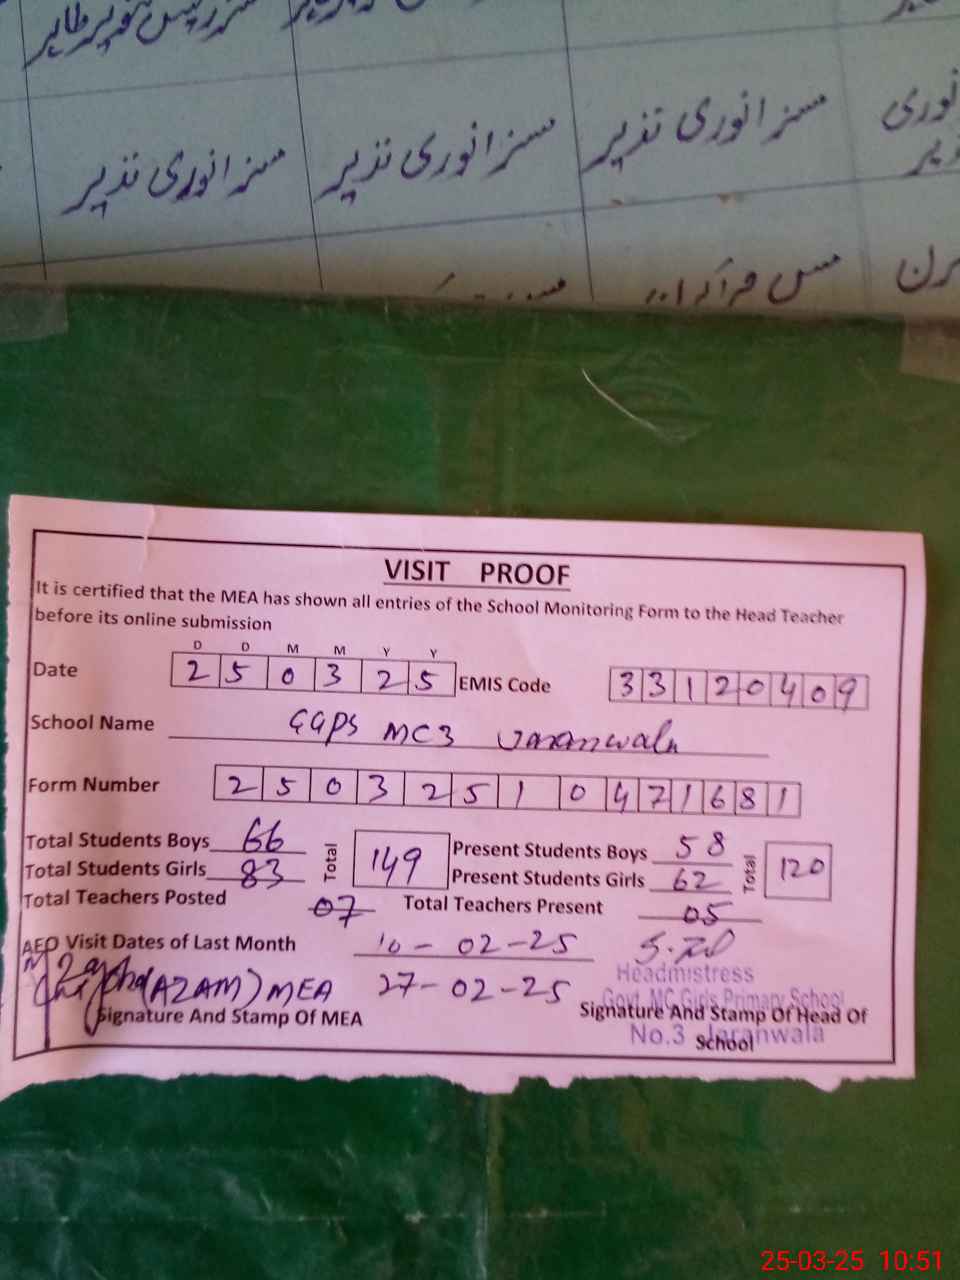 سنز انوری نذیر سنز انوری نذیر سنز انوری نذیر نوری
VISIT PROOF
It is certified that the MEA has shown all entries of the School Monitoring Form to the Head Teacher
before its online submission
D D M M Y Y
Date 2 5 0 3 2 5 EMIS Code 3 3 1 2 0 4 0 9
School Name GGPS MC3 Jaranwala
Form Number 2 5 0 3 2 5 1 0 4 7 1 6 8 1
Total Students Boys 66 Total 149 Present Students Boys 58 Total 120
Total Students Girls 83 Present Students Girls 62
Total Teachers Posted 07 Total Teachers Present 05
AEO Visit Dates of Last Month 10-02-25
(AZAM) MEA 27-02-25 Headmistress
Govt. MC Girls Primary School
Signature And Stamp Of MEA Signature And Stamp Of Head Of
No.3 Jaranwala
School
25-03-25 10:51